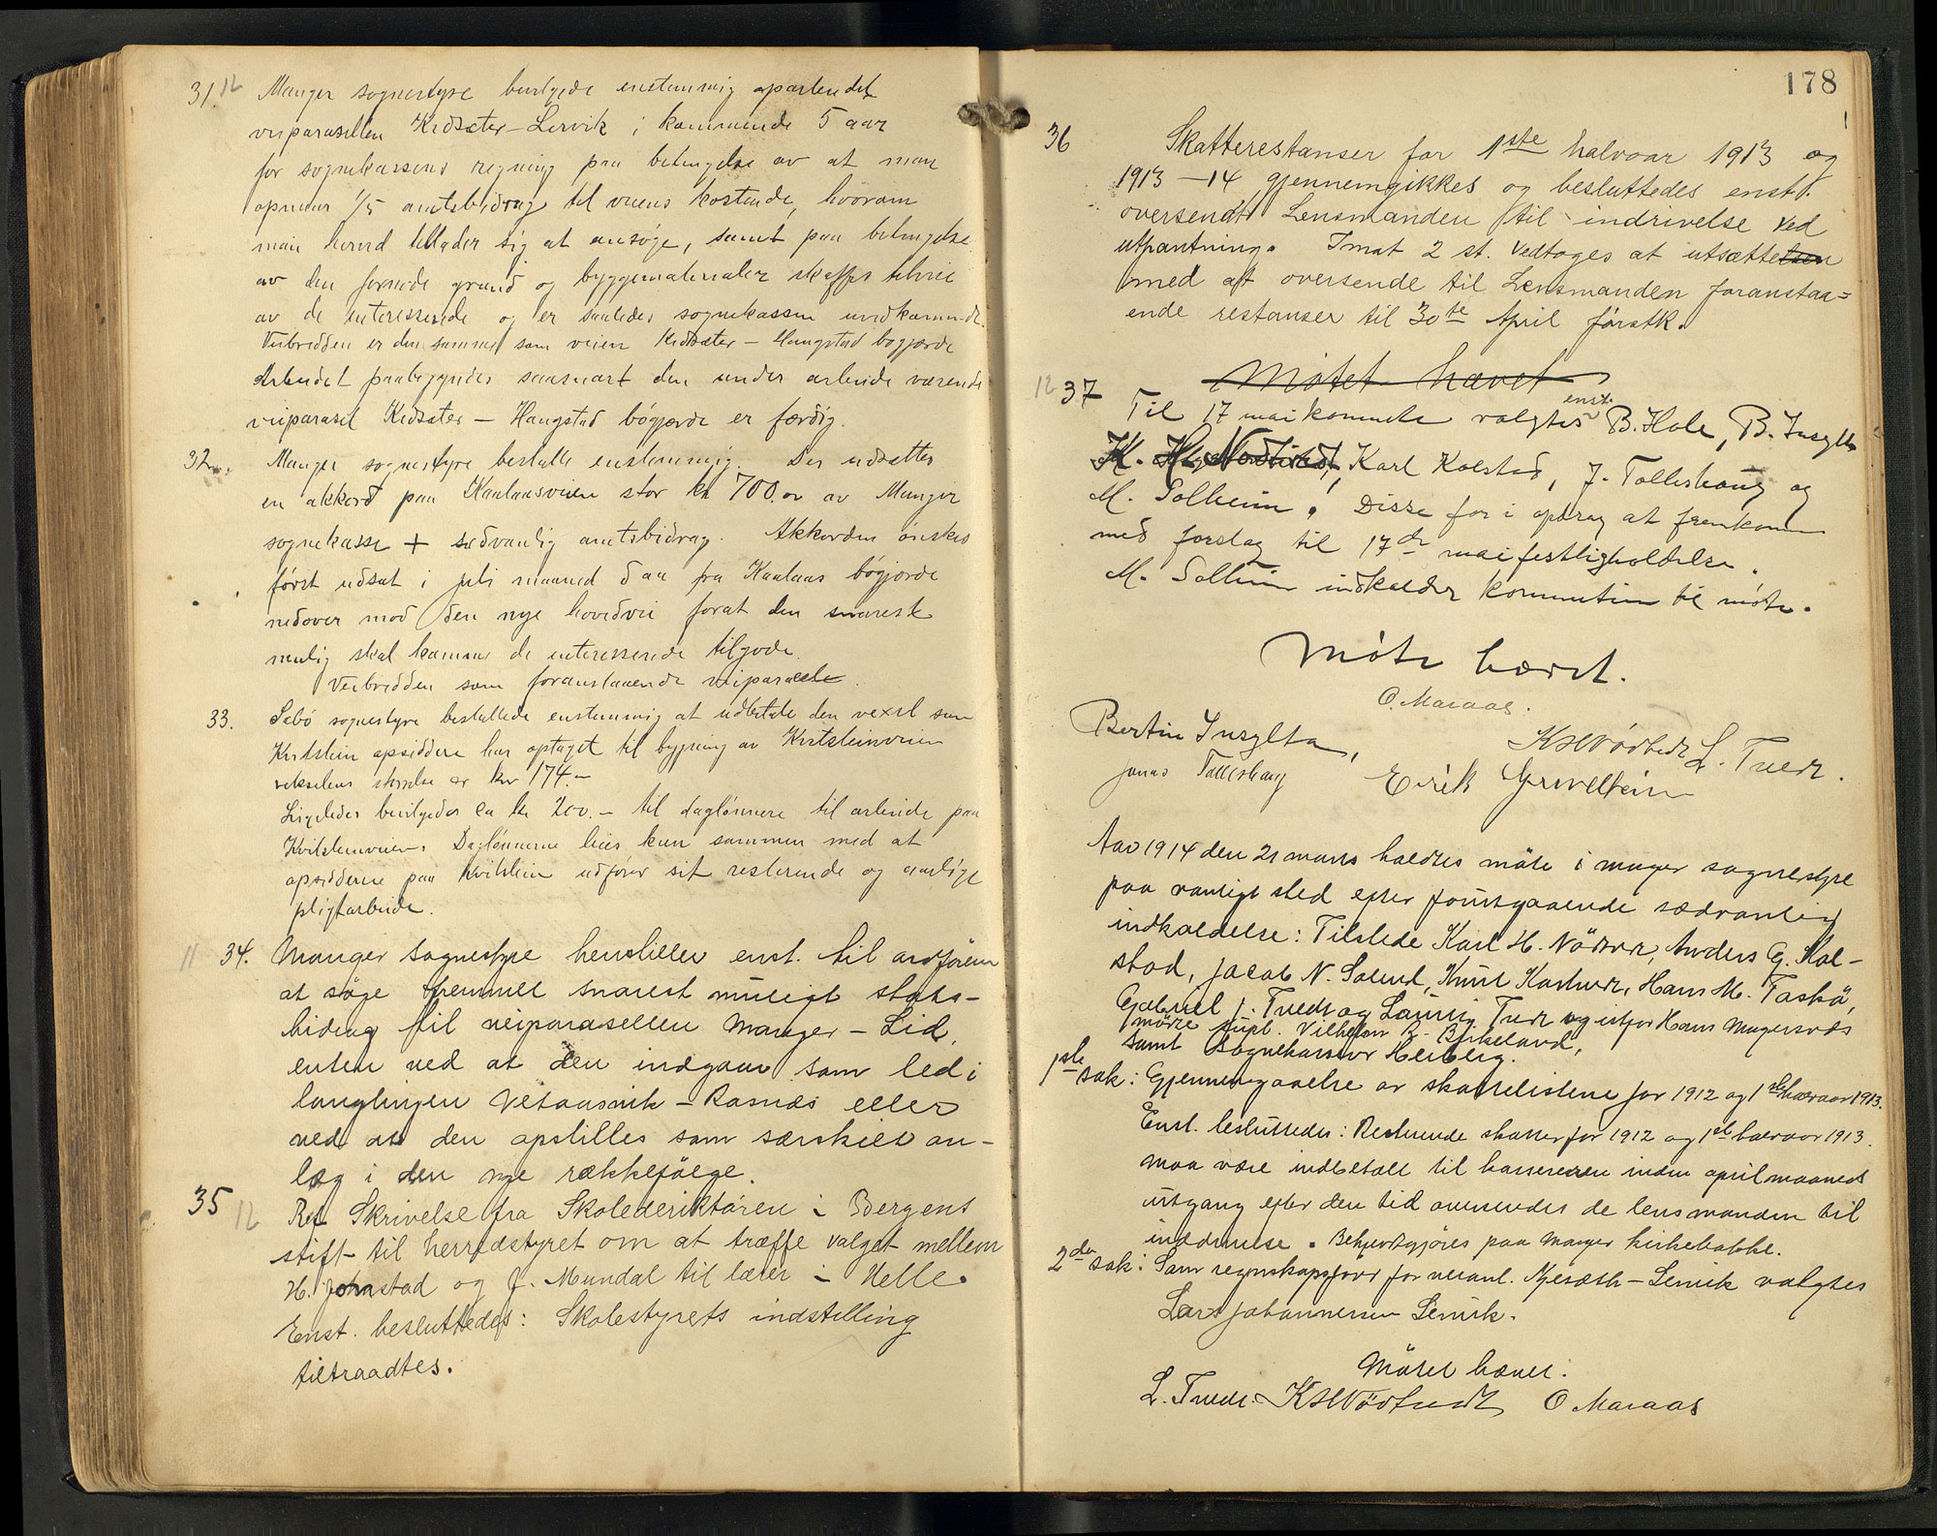 31. 12 Manger sognestyre bevilgede enstemmig oparbeidet
veiparasellen Kidsæter - Lervik i kommende 5 aar
for sognekassens regning paa betingelse av at man
opnaar 1/5 amtsbidrag til veiens kostende, hvorom
man herved tillader sig at ansöge, samt paa betingelse
av den fornöde grund og byggematerialer skaffes tilveie
av de interesserede og er saaledes sognekassen uvedkommende.
Veibredden er den samme som veien Kidsæter - Haugstad bögjærde
Arbeidet paabegyndes saasnart den under arbeide værende
veiparasel Kidsæter - Haugstad bögjærde er færdig.
32. Manger sognestyre besluttede enstemmig. Der udsættes
en akkord paa Kaalaasveien stor kr 700.00 av Manger
sognekasse + sædvanlig amtsbidrag. Akkorden önskes
först udsat i juli maaned d aa fra Kaalaas bögjorde
nedover mod den nye hovedvei forat den snarest
mulig skal komme de interesserede tilgode.
Veibredden som foranstaaende veiparasel.
33. Sæbö sognestyre besluttede enstemmig at udbetale den vexel som
Kvitstein opsiddere har optaget til bygning av Kvitsteinveien
vekselens störrelse er kr 174.-
Ligeledes bevilgedes ca kr 200.- til daglönnere til arbeide paa
Kvitsteinveien. Daglönnerne leies kun sammen med at
opsidderne paa Kvitstein udförer sit resterende og aarlige
pligtarbeide.
11 34. Manger sognestyre henstiller enst. til ordföreren
at söge fremmet snarest muligt stats-
bidrag til veiparasellen Manger - Lid,
enten ved at den indgaar som led i
langlinjen Vetaasvik - Rasnæs eller
ved at den opstilles som særskilt an-
læg i den nye rækkefölge.
35 12 Ref Skrivelse fra Skolederiktören i Bergens
stift til herredstyret om at træffe valget mellem
H. Jonstad og J. Mundal til lærer i Helle.
Enst. besluttedes: Skolestyrets indstilling
tiltraadtes.
178
36 Skatterestanser for 1ste halvaar 1913 og
1913-14 gjennemgikkes og besluttedes enst.
oversendt Lensmanden til indrivelse ved
utpantning. Imot 2 st. vedtoges at utsætte
med at oversende til Lensmanden foranstaa=
ende restanser til 30te April förstk.
Mötet hævet
12 37 Til 17 mai komite valgtes enst. B. Hole, B. Insylta
K. H. Nordtvedt, Karl Kolstad, J. Tolleshaug og
M. Solheim. Disse for i opdrag at fremkomme
med forslag til 17de mai festligholdelse.
M. Solheim indkalder komiteen til möte.
Möte hævet.
O. Maraas.
Bertin Insylta, KHNödtvedt L. Tvedt.
Jonas Tolleshaug Eirik Gruveltein
Aar 1914 den 21 mars holdtes möte i Manger sognestyre
paa vanligt sted efter forutgaaende sædvanlig
indkaldelse: Tilstede Karl H. Nödtvedt, Anders G. Kol-
stad, Jacob N. Solend, Knut Kartveit, Hans M. Toskö,
Gabriel J. Tvedt og Lauritz Tvedt og istfor Hans Mangersnæs
mötte supl. Vilhelm B. Birkeland,
samt sognekasserer Heiberg.
1ste sak: Gjennemgaaelse av skattelistene for 1912 og 1ste halvaar 1913.
Enst. besluttedes: Resterende skatter for 1912 og 1ste halvaar 1913.
maa være indbetalt til kassereren inden april maaneds
utgang efter den tid oversendes de lensmanden til
inddrivelse. Bekjendtgjöres paa Manger kirkebakke.
2den sak: Som regnskapsförer for veianl. Kjesæth - Lervik valgtes
Lars Johannessen Lervik.
Mötet hævet.
L. Tvedt. KHNödtvedt O Maraas